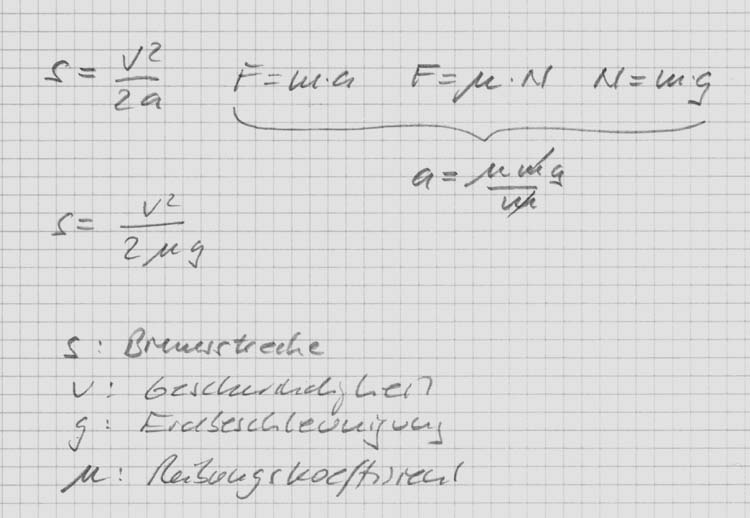 s = v²/2a F = m·a F = μ·N N = m·g
a = μmg/m
s = v²/2μg
s: Bremsstrecke
v: Geschwindigkeit
g: Erdbeschleunigung
μ: Reibungskoeffizient